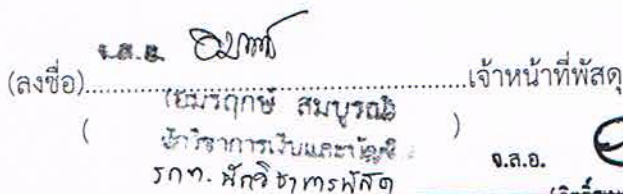 จ.ส.อ.
(ลงชื่อ)..........................................................เจ้าหน้าที่พัสดุ
สมบูรณ์
( นักวิชาการเงินและบัญชี )
รกท. นักวิชาการพัสดุ
จ.ส.อ.